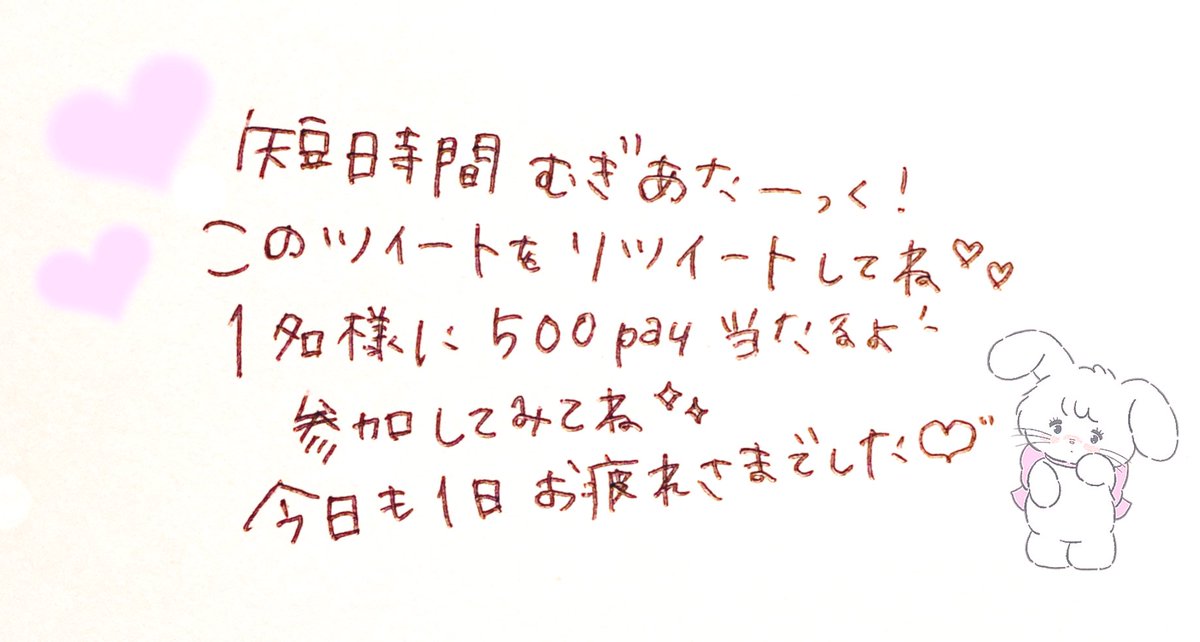 短時間むぎあたーっく!
このツイートをリツイートしてね♡♡
1名様に500pay当たるよ
参加してみてね✧✧
今日も1日お疲れさまでした♡